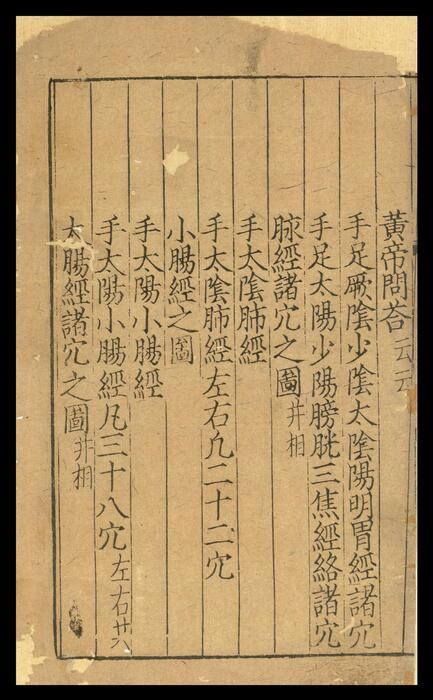 黃帝問荅云云
手足厥陰少陰太陰陽明胃經諸穴
手足太陽少陽膀胱三焦經絡諸穴
脉經諸穴之圖并相
手太陰肺經
手太陰肺經左右凢二十二穴
小腸經之圖
手太陽小腸經
手太陽小腸經凢三十八穴左右廿八
大腸經諸穴之圖并相